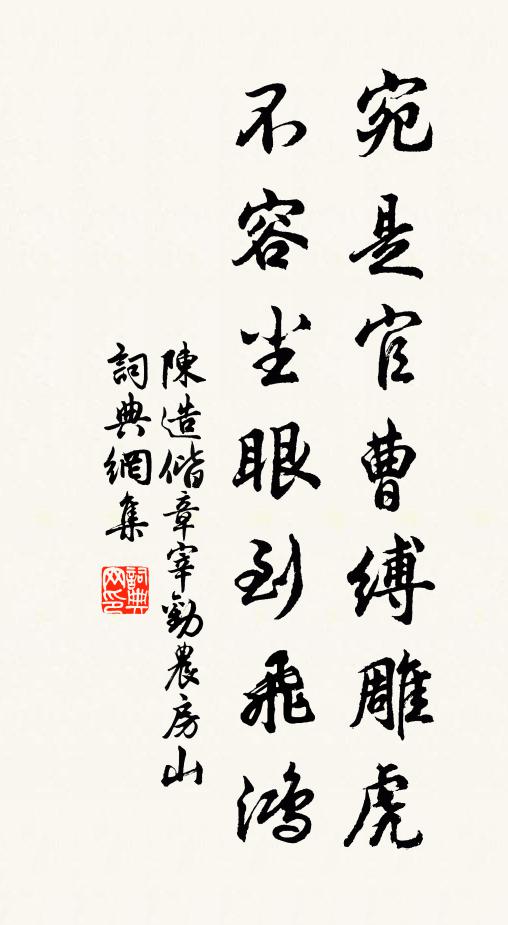 宛是官曹縛雕虎
不容尘眼到飛鴻
陳造偕章宰勸農房山
詞典網集
詞典
网印